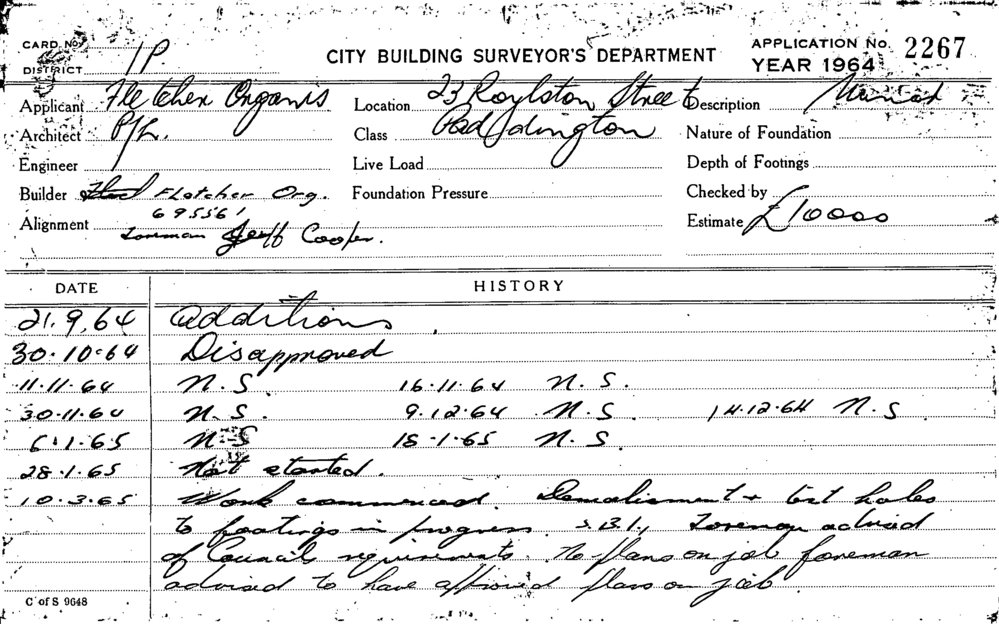 CARD No. 1P
CITY BUILDING SURVEYOR'S DEPARTMENT
APPLICATION No. 2267
DISTRICT
YEAR 1964
Applicant Fletcher Organis
Location 23 Roylston Street
Description
Architect P/L.
Class Paddington
Nature of Foundation
Engineer
Live Load
Depth of Footings
Builder Fletcher Org.
Foundation Pressure
Checked by
695561
Estimate £10000
Alignment foreman Jeff Cooper.
DATE HISTORY
21.9.64 Additions
30.10.64 Disapproved
11.11.64 N.S. 16.11.64 N.S.
30.11.64 N.S. 9.12.64 N.S. 14.12.64 N.S.
6.1.65 N.S 18.1.65 N.S.
28.1.65 Not started.
10.3.65 Work commenced. + test holes
to footings in progress foreman advised
of Councils requirements. No plans on job foreman
advised to have approved plans on job
C of S 9648